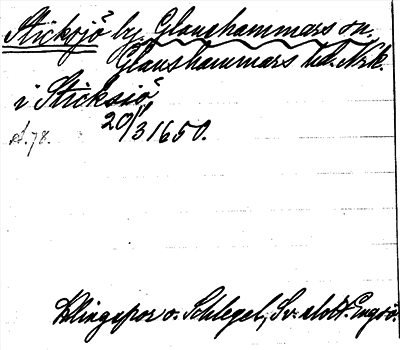 Sticksjö by, Glanshammars sn,
Glanshammars hd. Nrk.
i Sticksiö
20/3 1650.
st. 78.
Klingspor o. Schlegel, Sv. slott. Engsö.